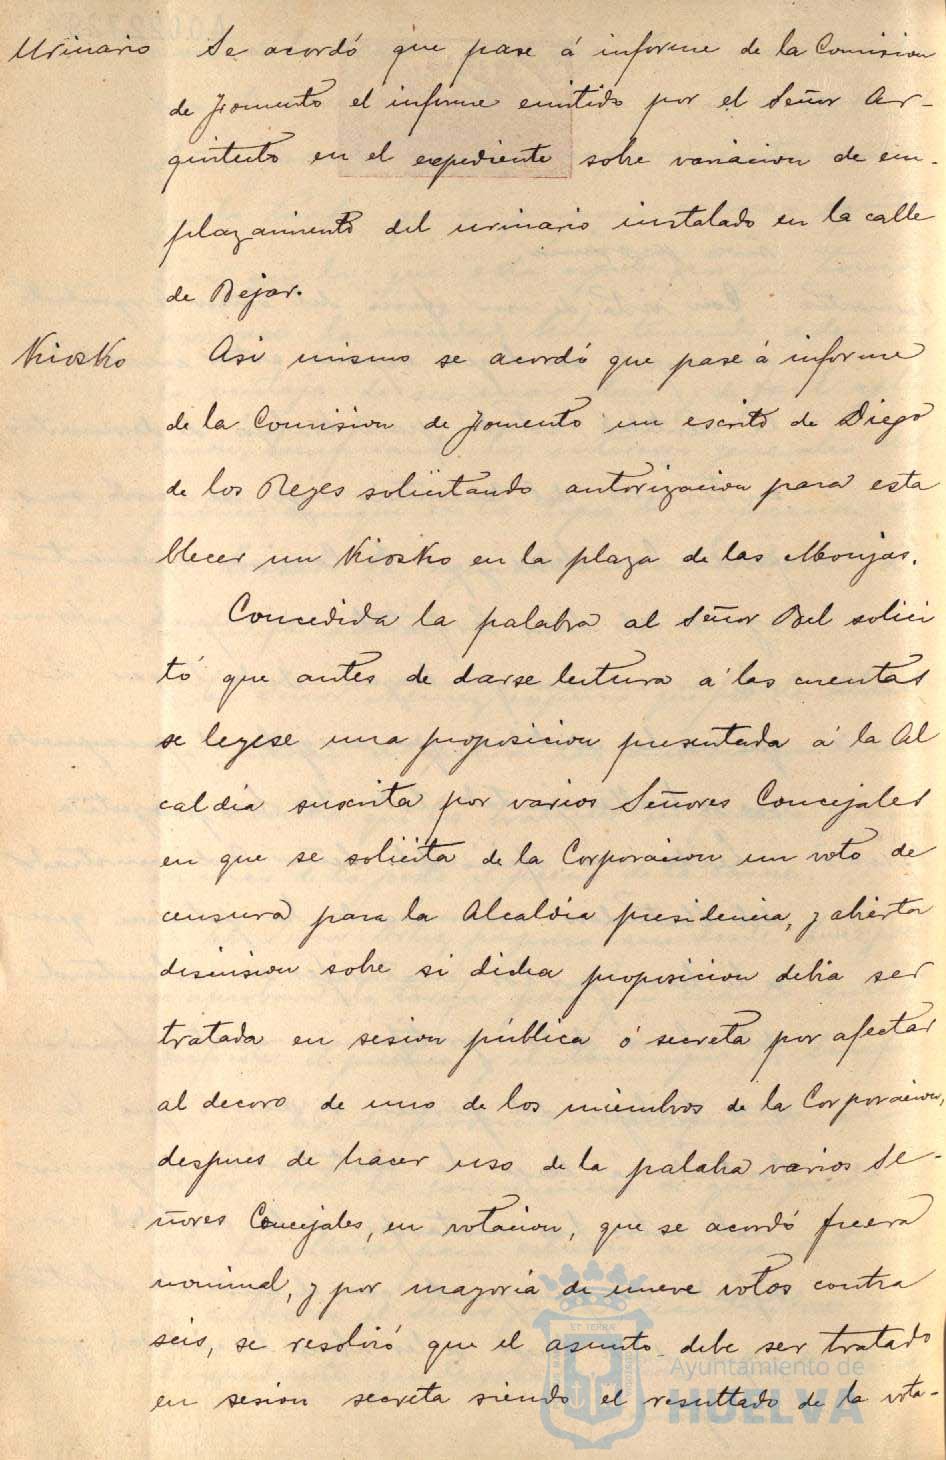 Urinario Se acordó que pase á informe de la Comision
de Fomento el informe emitido por el Señor Ar-
quitecto en el expediente sobre variacion de em-
plazamiento del urinario instalado en la calle
de Bejar.
Kiosko Asi mismo se acordó que pase á informe
de la Comision de Fomento un escrito de Diego
de los Reyes solicitando autorizacion para esta
blecer un Kiosko en la plaza de las Monjas.
Concedida la palabra al Señor Bel solici
tó que antes de darse lectura á las cuentas
se leyese una proposicion presentada á la Al
caldia suscrita por varios Señores Concejales
en que se solicita de la Corporacion un voto de
censura para la Alcaldia presidencia, y abierta
discusion sobre si dicha proposicion debia ser
tratada en sesion pública ó secreta por afectar
al decoro de uno de los miembros de la Corporacion,
despues de hacer uso de la palabra varios Se-
ñores Concejales, en votacion, que se acordó fuera
nominal, y por mayoria de nueve votos contra
seis, se resolvió que el asunto debe ser tratado
en sesion secreta siendo el resultado de la vota-
ET TERRÆ
Ayuntamiento de
HUELVA